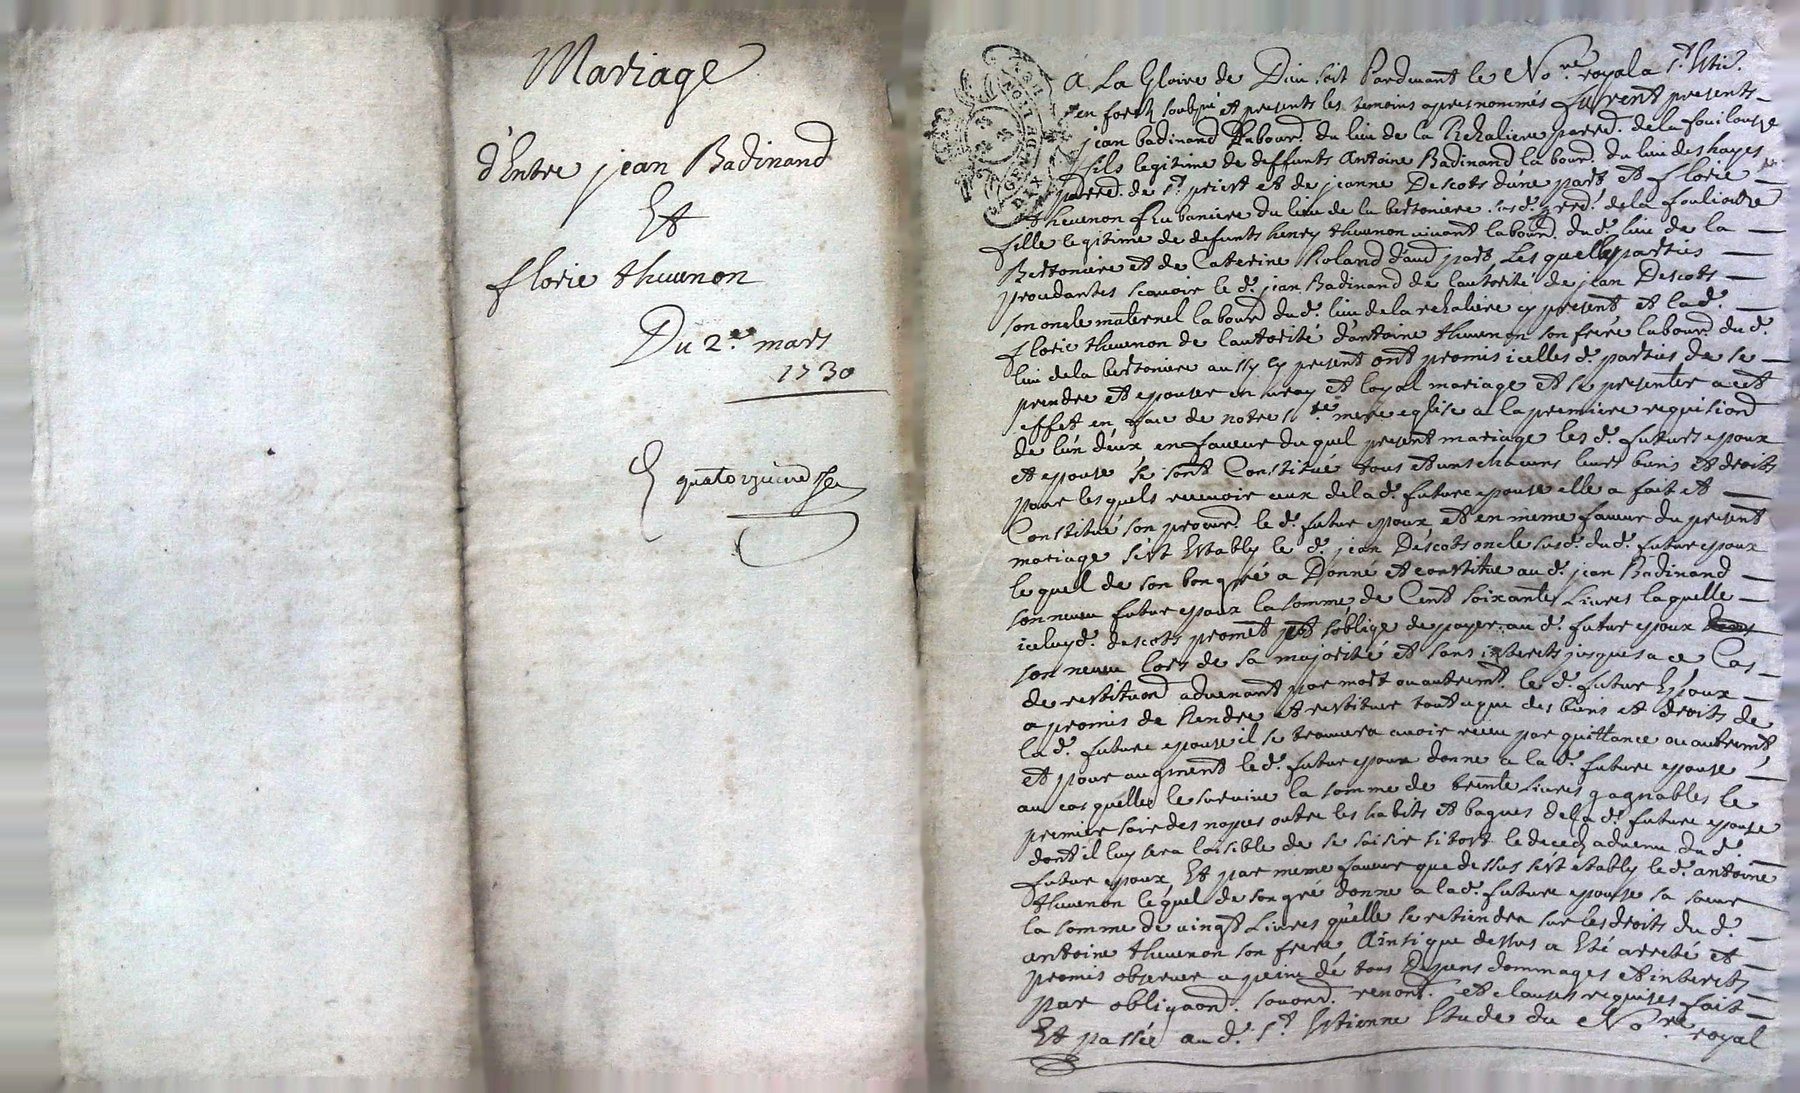 Mariage
d'Entre jean Badinand
Et
florie thuuenon
Du 2e mars
1730
GEN DE LYON
A La Gloire de Dieu soit Pardeuant le Nore royal a st Etie.
en forest soubsne et presents les temoins apres nommés furent presents
jean badinand Labourd du lieu de la parred. de la fouilouse
fils legitime de deffunts Antoine Badinand labourd. du lieu des hayes
parred. de st priest et de jeanne Descots d'une part et florie
thuuenon Rubaniere du lieu de la bertoniere susd. parred. de la fouliouse
fille legitime de defunts henry thuuenon viuant labourd. dud. lieu de la
Bertoniere et de Caterine Roland d'aud part Lesquelles parties
procedantes scauoir le d. jean Badinand de l'autorité de jean Descots
son oncle maternel labourd dud. lieu de la cy present et lad.
florie thuuenon de l'autorité d'antoine thuuenon son frere labourd dud.
lieu de la bertoniere aussy cy present ont promis icelles d. parties de se
prendre et epouser en uray et loyal mariage et se presenter a cet
effet en face de notre ste mere eglise a la premiere requisiond
de l'un d'eux en faueur du quel present mariage les d. futurs epoux
et epouse se sont Constitué tous et uns chacuns leurs biens et droits
pour lesquels receuoir ceux de la d. future epouse elle a fait et
Constitué son procurd. le d. futur epoux et en meme faueur du present
mariage s'est Estably le d. jean Descots oncle susd. dud. futur epoux
lequel de son bon gré a Donné et constitue aud. jean Badinand
son neueu futur epoux la somme de Cent soixante Liures laquelle
iceluy d. descots promet et s'oblige de payer au d. futur epoux
son neueu lors de sa majorité et sans interets jusques a ce Cas
de restituond aduenant par mort ou autremt. le d. futur Epoux
a promis de Rendre et restituer tout ce que des biens et droits de
la d. future epouse il se trouuera auoir receu par quittance ou autremt
et pour augment le d. futur epoux donne a la d. future epouse
au cas quelle le suruiue la somme de trente Liures gagnables le
premier soir des nopces outre les habits et bagues de la d. future epouse
dont il luy sera loisible de se saisir sitost le decedz aduenu du d.
futur epoux Et par meme faueur que dessus s'est etably le d. antoine
thuuenon lequel de son gré donne a la d. future epouse sa soeur
la somme de vingt Liures qu'elle se retiendra sur les droits du d.
antoine thuuenon son frere Ainsi que dessus a Eté arreté et
promis obseruer a peine de tous Depens dommages et interets
par obligaond. renond. et clauses requises fait
Et passée aud. st Estienne Etude du Nore royal